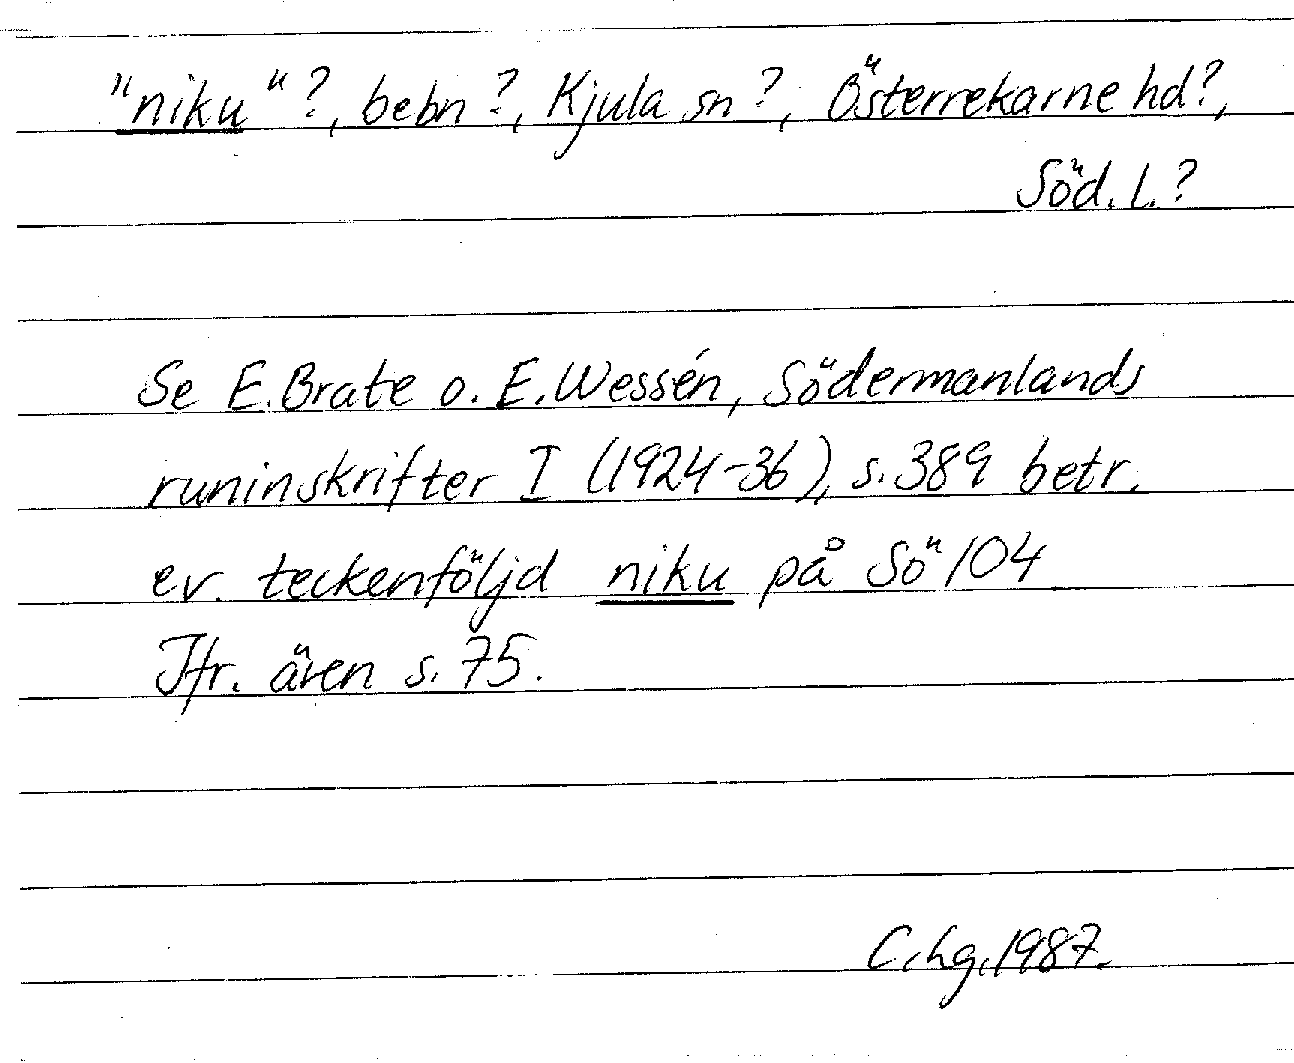 "niku"?, bebn?, Kjula sn?, Österrekarne hd?,
Söd. l.?
Se E.Brate o. E.Wessén, Södermanlands
runinskrifter I (1924-36), s.389 betr.
ev. teckenföljd niku på Sö 104
Jfr. även s.75.
C.hg.1987.